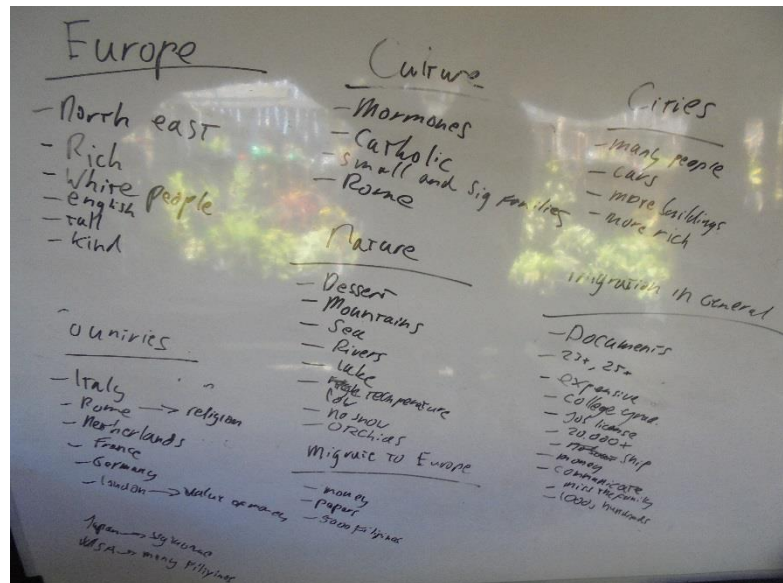 Europe
- North east
- Rich
- White people
- english
- tall
- Kind
Countries
- Italy
- Rome → religion
- Netherlands
- France
- Germany
- London → value of money
Japan →
USA → many Filipines
Culture
- Mormones
- Catholic
- small and big families
- Rome
Nature
- Dessert
- Mountains
- Sea
- Rivers
- Lake
- temperature
- no snow
- orchids
Migrate to Europe
- money
- papers
- 5000 Filipines
Cities
- many people
- cars
- more buildings
- more rich
imigration in General
- Documents
- 23+, 25+
- expensive
- college grad.
- Job license
- 20.000+
- ship
- money
- communicate
- miss the family
- 1000s hundreds